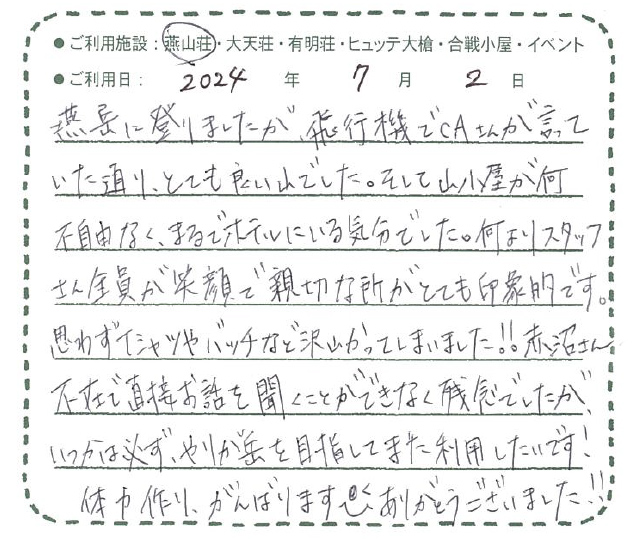 ●ご利用施設：燕山荘・大天荘・有明荘・ヒュッテ大槍・合戦小屋・イベント
●ご利用日： 2024 年 7 月 2 日
燕岳に登りましたが、飛行機でCAさんが言って
いた通り、とても良い山でした。そして山小屋が何
不自由なく、まるでホテルにいる気分でした。何よりスタッフ
さん全員が笑顔で親切な所がとても印象的です。
思わずTシャツやバッチなど沢山かってしまいました!!赤沼さん
不在で直接お話を聞くことができなく残念でしたが
いつかは必ず、やりが岳を目指してまた利用したいです!
体力作り、がんばります ありがとうございました!!